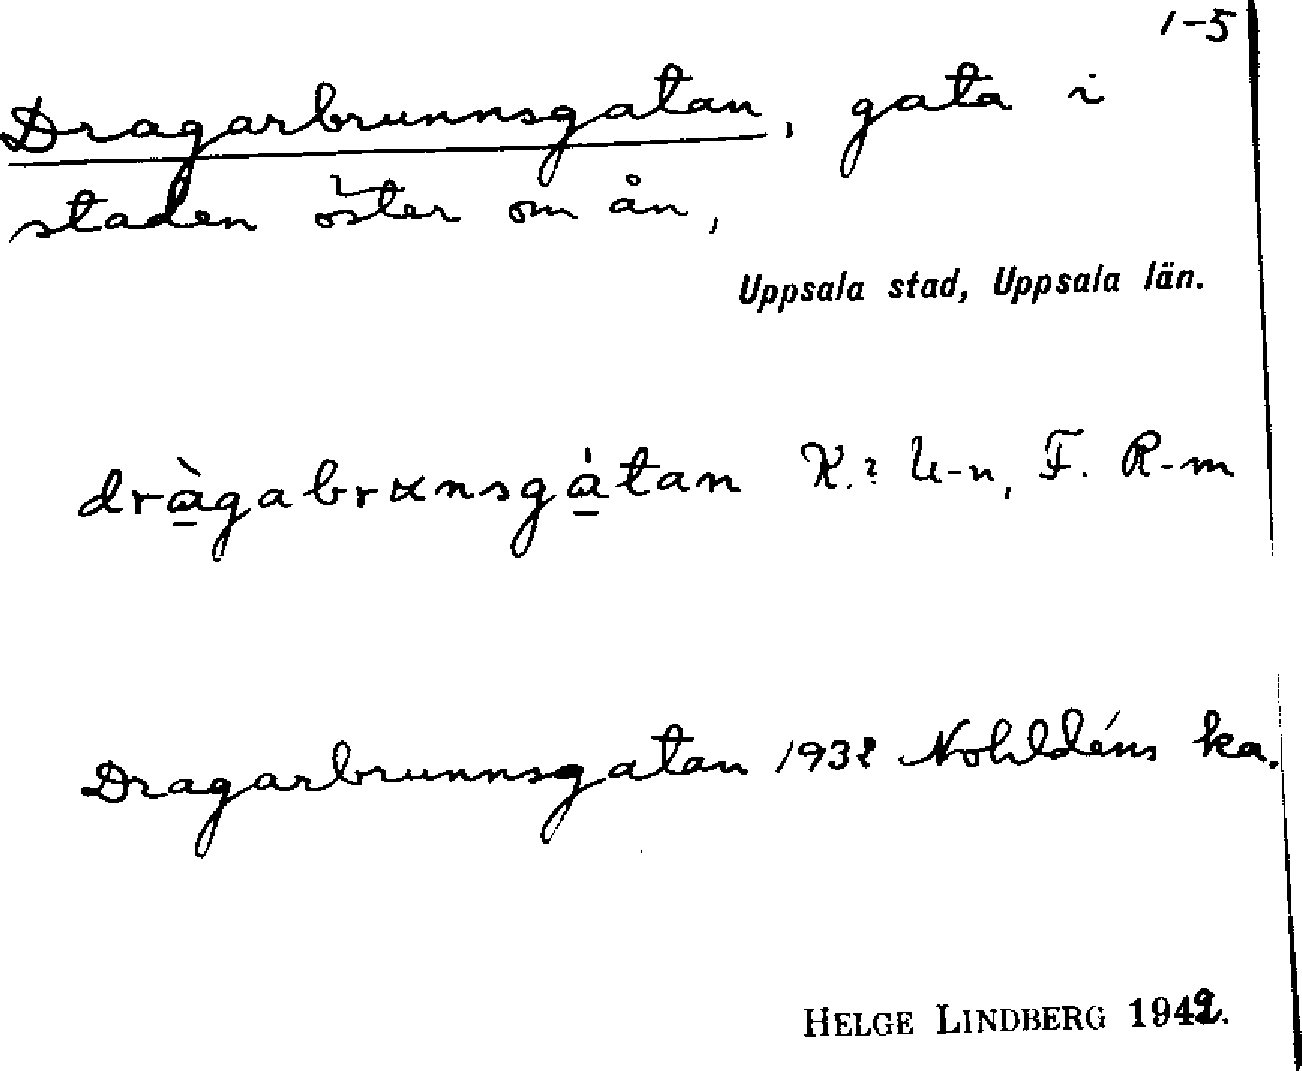 1-5
Dragarbrunnsgatan, gata i
staden öster om ån,
Uppsala stad, Uppsala län.
drа̱̀gabrɤnsga̱̍tan K.? U-n, F. R-m
Dragarbrunnsgatan 1932 Nohldéns ka.
HELGE LINDBERG 1942.